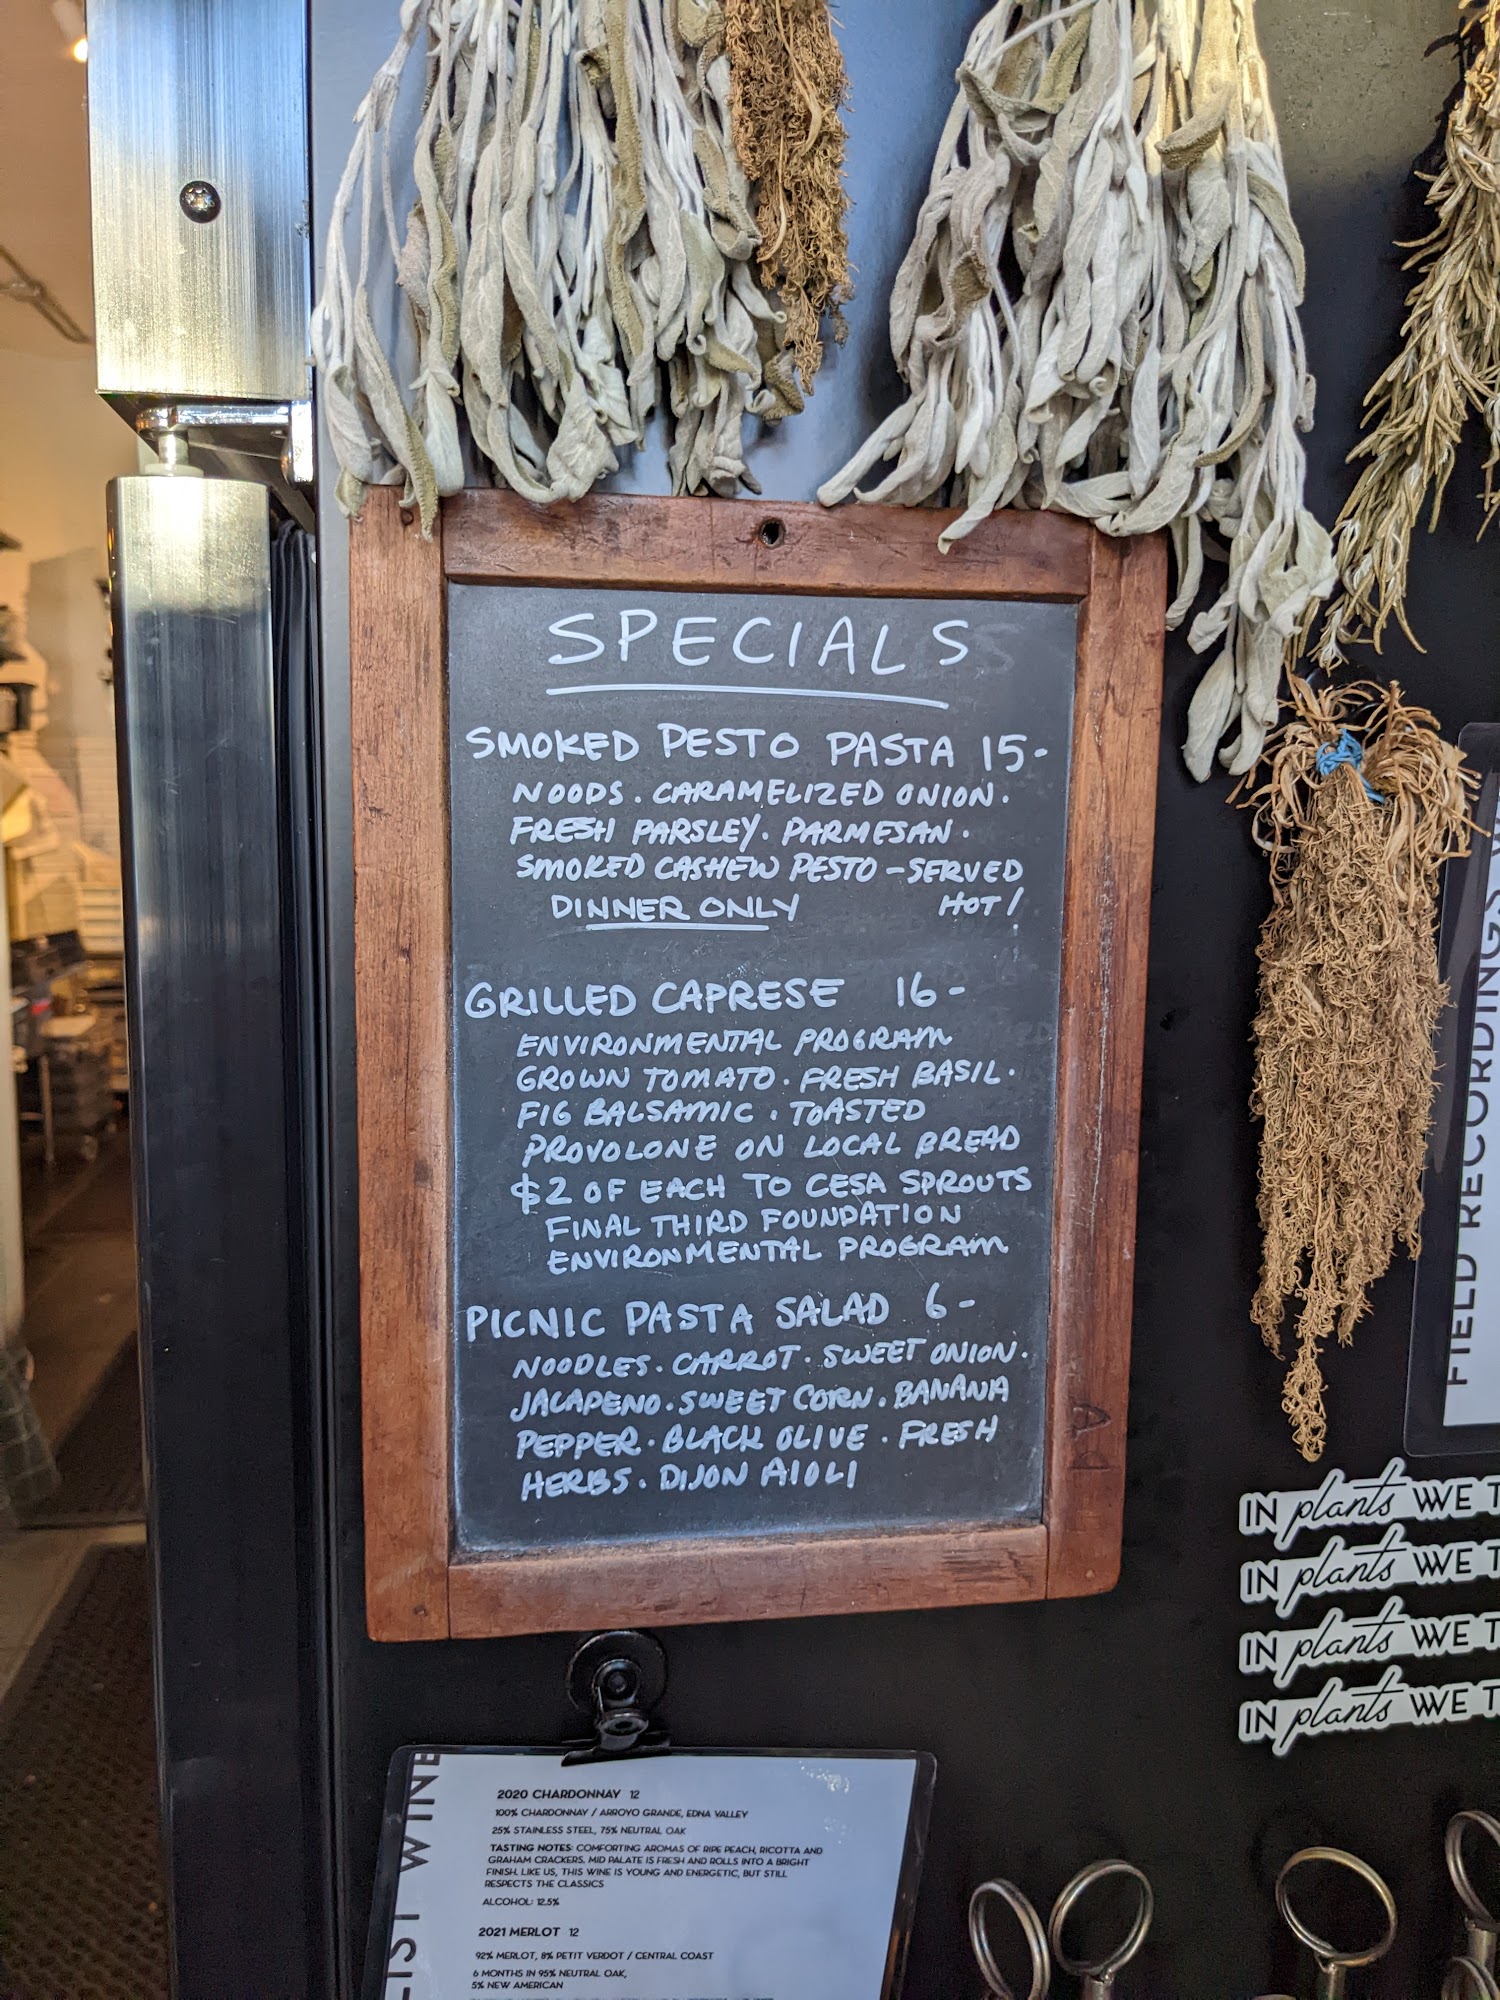 SPECIALS
SMOKED PESTO PASTA 15-
NOODS. CARAMELIZED ONION.
FRESH PARSLEY. PARMESAN.
SMOKED CASHEW PESTO - SERVED
DINNER ONLY HOT!
GRILLED CAPRESE 16-
ENVIRONMENTAL PROGRAM
GROWN TOMATO. FRESH BASIL.
FIG BALSAMIC. TOASTED
PROVOLONE ON LOCAL BREAD
$2 OF EACH TO CESA SPROUTS
FINAL THIRD FOUNDATION
ENVIRONMENTAL PROGRAM
PICNIC PASTA SALAD 6-
NOODLES. CARROT. SWEET ONION.
JALAPENO. SWEET CORN. BANANA
PEPPER. BLACK OLIVE. FRESH
HERBS. DIJON AIOLI
FIELD RECORDINGS
IN plants WE T
IN plants WE T
IN plants WE T
IN plants WE T
WINE
2020 CHARDONNAY 12
100% CHARDONNAY / ARROYO GRANDE, EDNA VALLEY
25% STAINLESS STEEL, 75% NEUTRAL OAK
TASTING NOTES: COMFORTING AROMAS OF RIPE PEACH, RICOTTA AND
GRAHAM CRACKERS. MID PALATE IS FRESH AND ROLLS INTO A BRIGHT
FINISH. LIKE US, THIS WINE IS YOUNG AND ENERGETIC, BUT STILL
RESPECTS THE CLASSICS
ALCOHOL: 12.5%
2021 MERLOT 12
92% MERLOT, 8% PETIT VERDOT / CENTRAL COAST
6 MONTHS IN 95% NEUTRAL OAK,
5% NEW AMERICAN